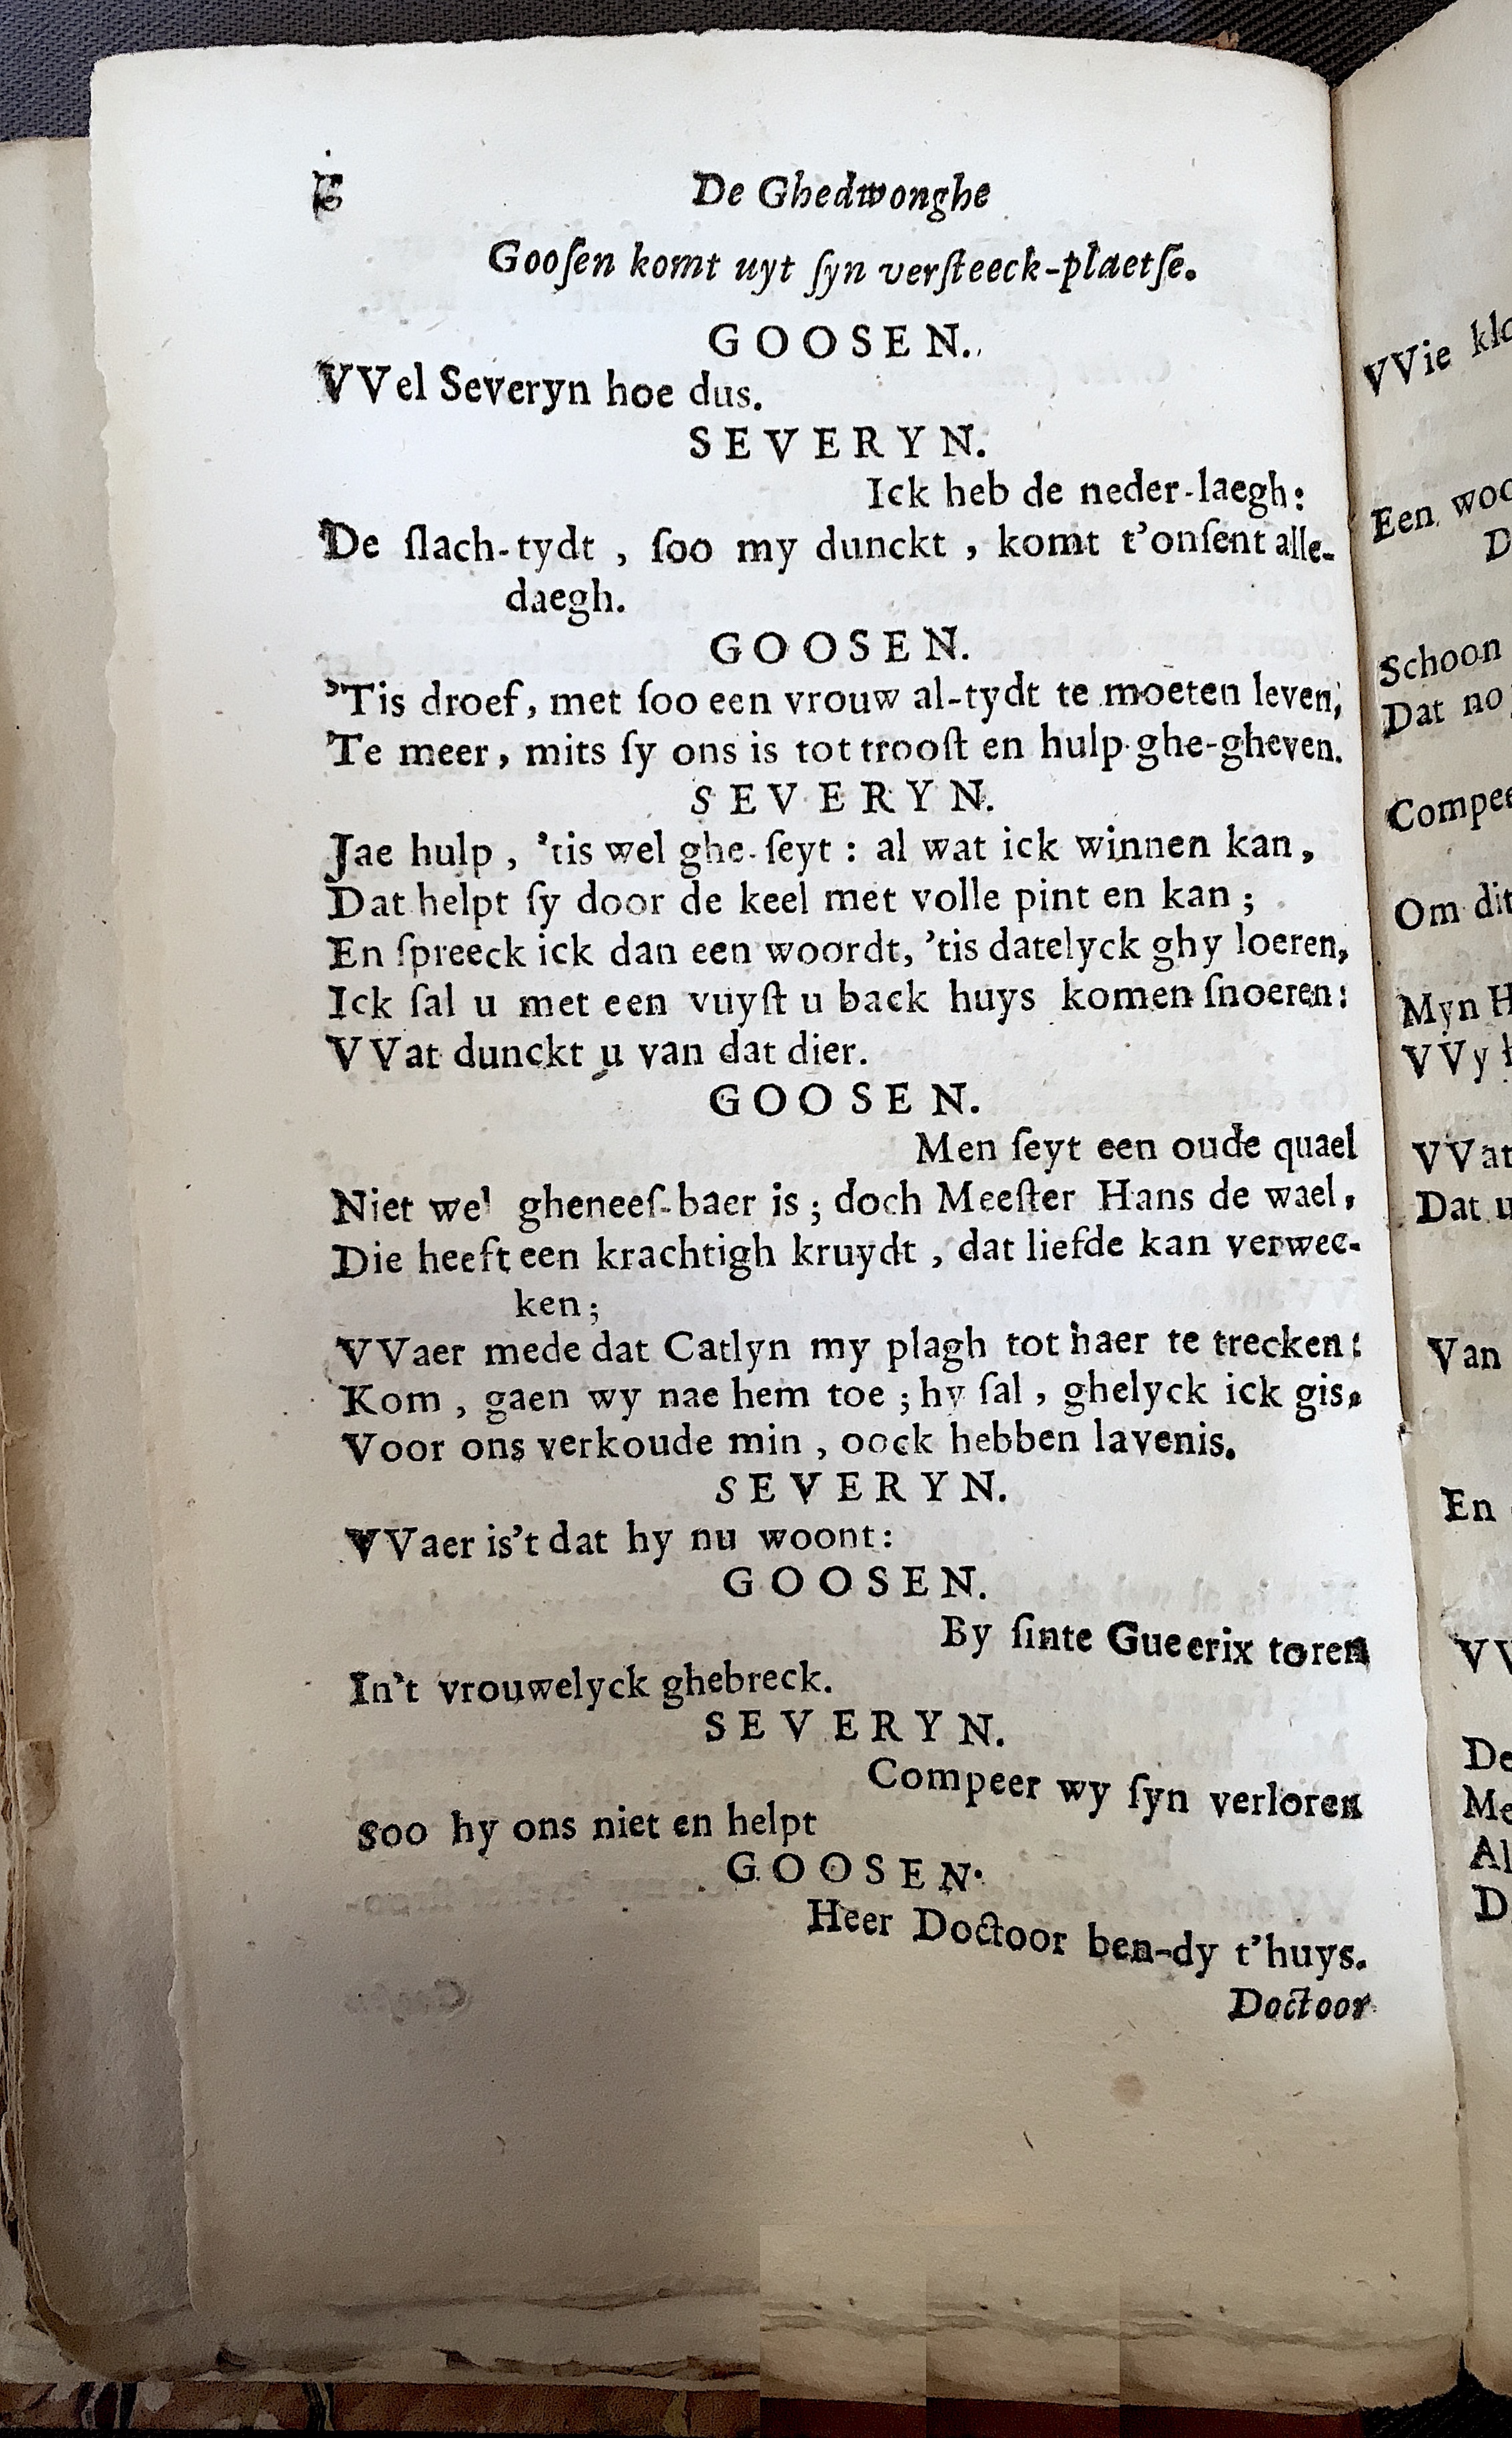 6 De Ghedwonghe
Gooſen komt uyt ſyn verſteeck-plaetſe.
GOOSEN.
VVel Severyn hoe dus.
SEVERYN.
Ick heb de neder-laegh:
De ſlach-tydt , ſoo my dunckt , komt t'onſent alle-
daegh.
GOOSEN.
'Tis droef, met ſoo een vrouw al-tydt te moeten leven,
Te meer, mits ſy ons is tot trooſt en hulp ghe-gheven.
SEVERYN.
Jae hulp , 'tis wel ghe-ſeyt : al wat ick winnen kan,
Dat helpt ſy door de keel met volle pint en kan ;
En ſpreeck ick dan een woordt, 'tis datelyck ghy loeren,
Ick ſal u met een vuyſt u back huys komen ſnoeren:
VVat dunckt u van dat dier.
GOOSEN.
Men ſeyt een oude quael
Niet wel gheneeſ-baer is ; doch Meeſter Hans de wael,
Die heeft een krachtigh kruydt , dat liefde kan verwec-
ken;
VVaer mede dat Catlyn my plagh tot haer te trecken:
Kom , gaen wy nae hem toe ; hy ſal , ghelyck ick gis,
Voor ons verkoude min , oock hebben lavenis.
SEVERYN.
VVaer is't dat hy nu woont:
GOOSEN.
By ſinte Gueerix toren
In't vrouwelyck ghebreck.
SEVERYN.
Compeer wy ſyn verloren
Soo hy ons niet en helpt
GOOSEN.
Heer Doctoor ben-dy t'huys.
Doctoor
VVie
Een
Schoon
Dat
Om dit
Myn
VVy
VVat
Dat
Van
En
De